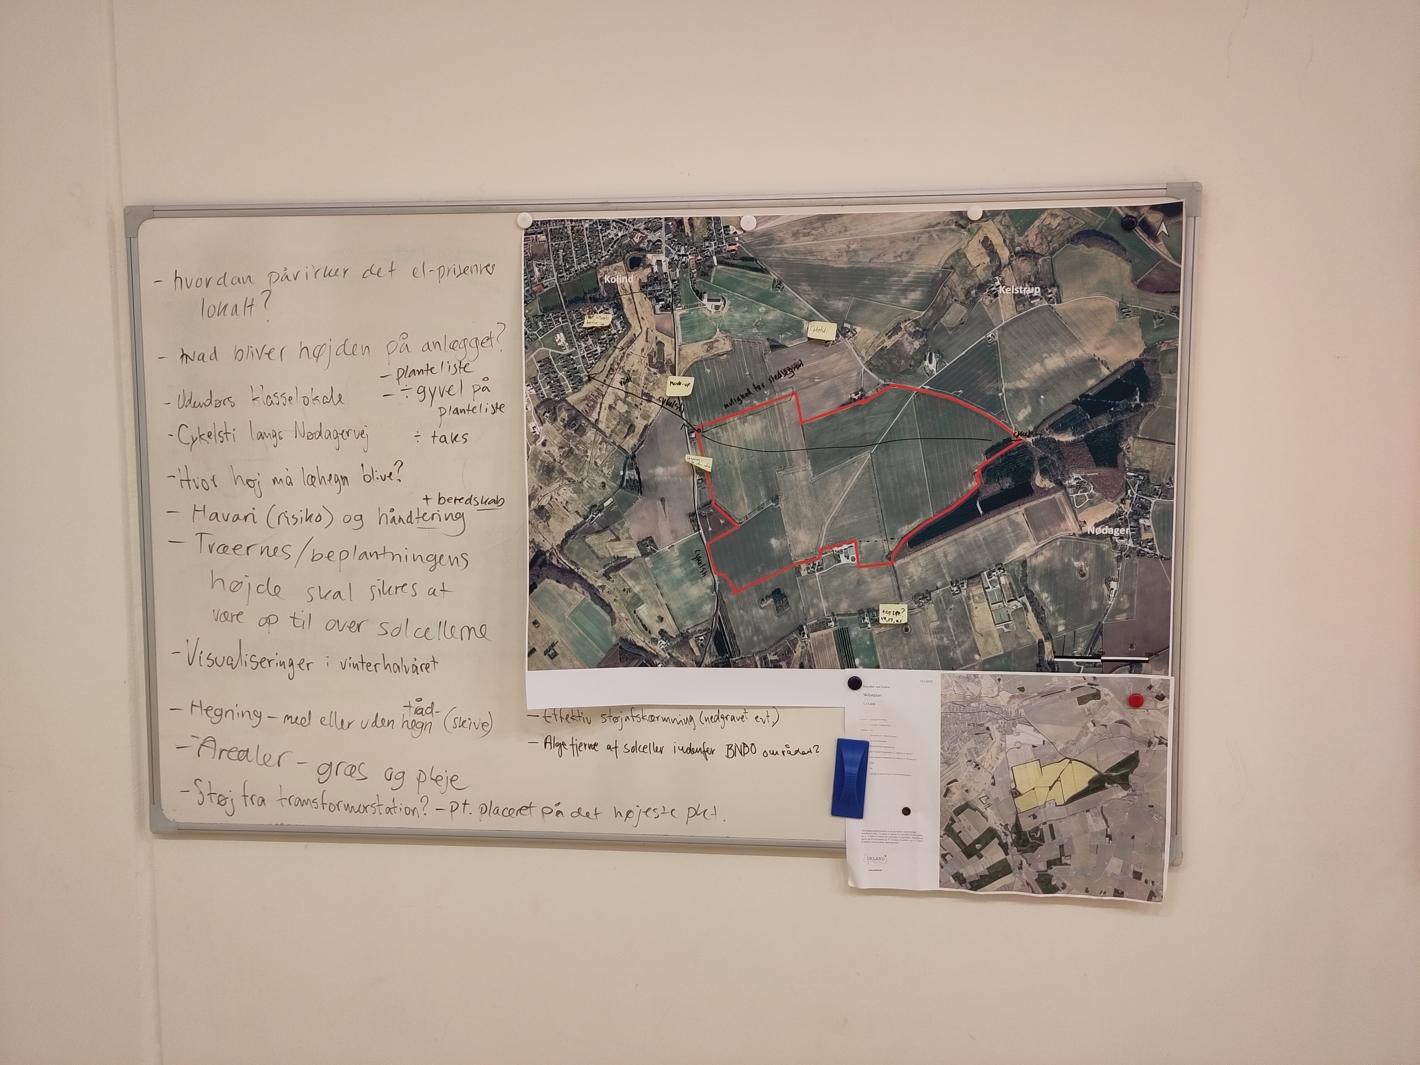 - hvordan påvirker det el-priserne
lokalt?
- hvad bliver højden på anlægget?
- planteliste
- ÷ gyvel på
planteliste
- Udendørs klasselokale
- Cykelsti langs Nødagervej
÷ taks
- Hvor høj må læhegn blive?
+ beredskab
- Havari (risiko) og håndtering
- Træernes/beplantningens
højde skal sikres at
være op til over solcellerne
- Visualiseringer i vinterhalvåret
- Hegning - med eller uden hegn (skive)
tråd-
- Arealer - græs og pleje
- Støj fra transformorstation? - pt. placeret på det højeste pkt.
- Effektiv støjafskærmning (nedgravet evt.)
- Algefjerne af solceller indenfor BNBO området?
Kolind
Kelstrup
Nødager
mulighed for
Mock-up
cykelsti